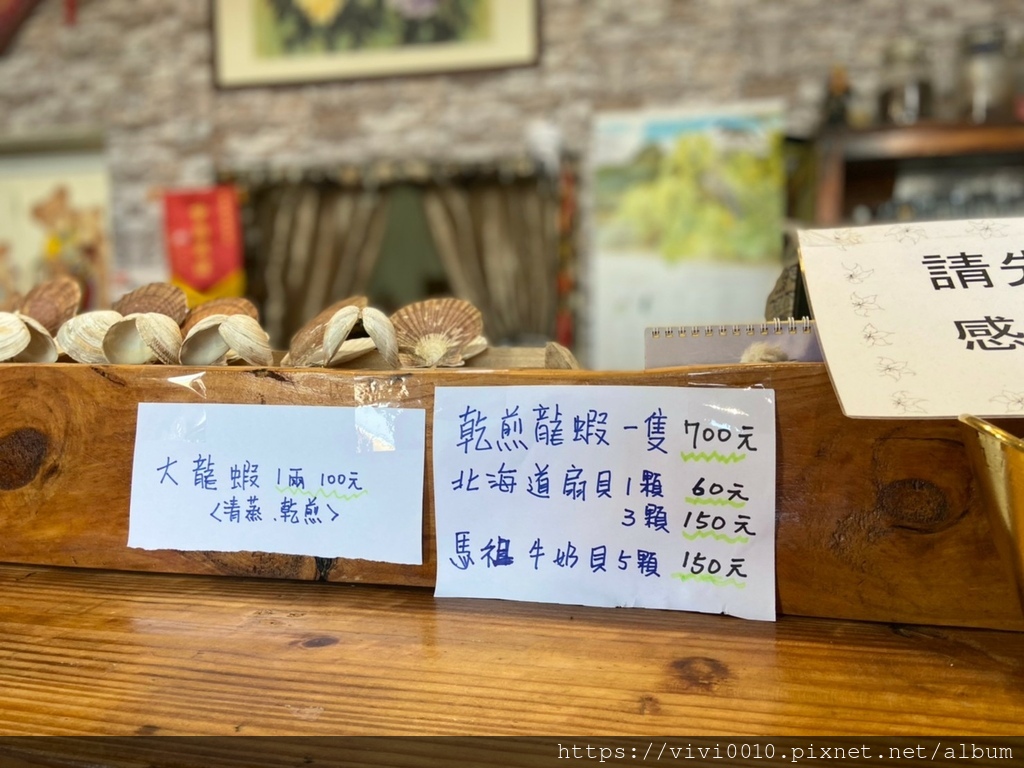 請先
感
大龍蝦 1兩 100元
<清蒸.乾煎>
乾煎龍蝦一隻 700元
北海道扇貝1顆 60元
3顆 150元
馬祖牛奶貝5顆 150元
https://vivi0010.pixnet.net/album